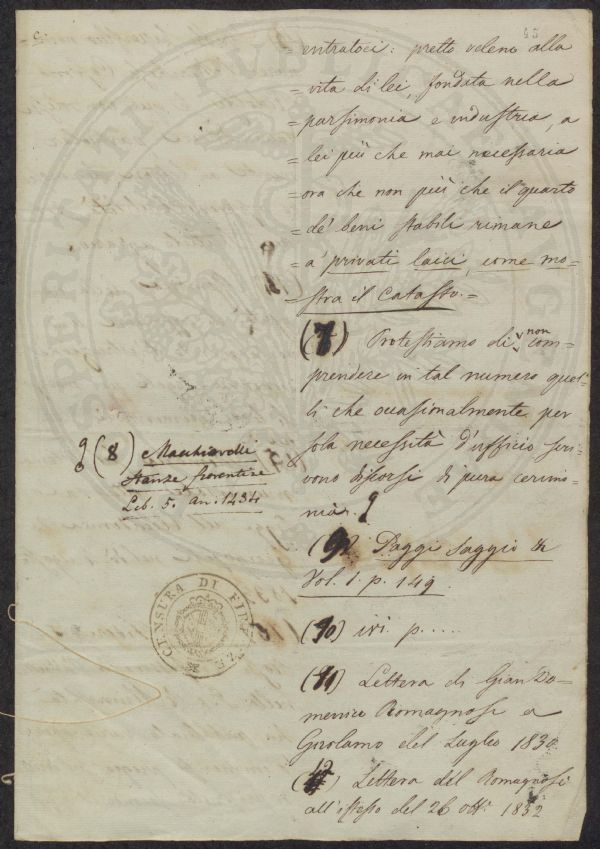 45
entratoci: pretto veleno alla
= vita di lei, fondata nella
= parsimonia e industria, a
= lei più che mai necessaria
= ora che non più che il quarto
= de' beni stabili rimane
= a' privati laici, come mo-
= stra il Catasto. =
(7) Protestiamo di non com-
prendere in tal numero quel-
li che occasionalmente per
sola necessità d'uffizio scri-
vono discorsi di pura cerimo-
nia.
(8) Macchiavelli
Stanze fiorentine
Lib. 5. an. 1434
(9) Paggi saggio &
Vol. 1. p. 149
(10) ivi. p.....
(11) Lettera di Gian Do-
menico Romagnosi a
Girolamo del Luglio
(12) Lettera del Romagnosi
all'istesso del 26 ott. 1832
CENSURA DI FIRENZE